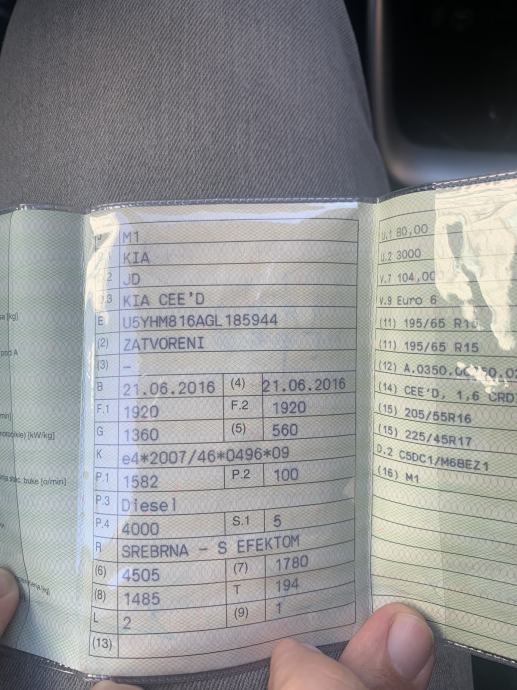 J M1
KIA
2 JD
.3 KIA CEE'D
E U5YHM816AGL185944
(2) ZATVORENI
(3) –
B 21.06.2016 (4) 21.06.2016
F.1 1920 F.2 1920
G 1360 (5) 560
K e4*2007/46*0496*09
P.1 1582 P.2 100
P.3 Diesel
P.4 4000 S.1 5
R SREBRNA – S EFEKTOM
(6) 4505 (7) 1780
(8) 1485 T 194
L 2 (9) 1
(13)
U.1 80,00
U.2 3000
V.7 104,00
V.9 Euro 6
(11) 195/65 R15
(11) 195/65 R15
(12)
(14) CEE'D, 1,6 CRD
(15) 205/55R16
(15) 225/45R17
D.2 C5DC1/M6BEZ1
(16) M1
[kg]
pod A
min]
[kW/kg]
buke [o/min]